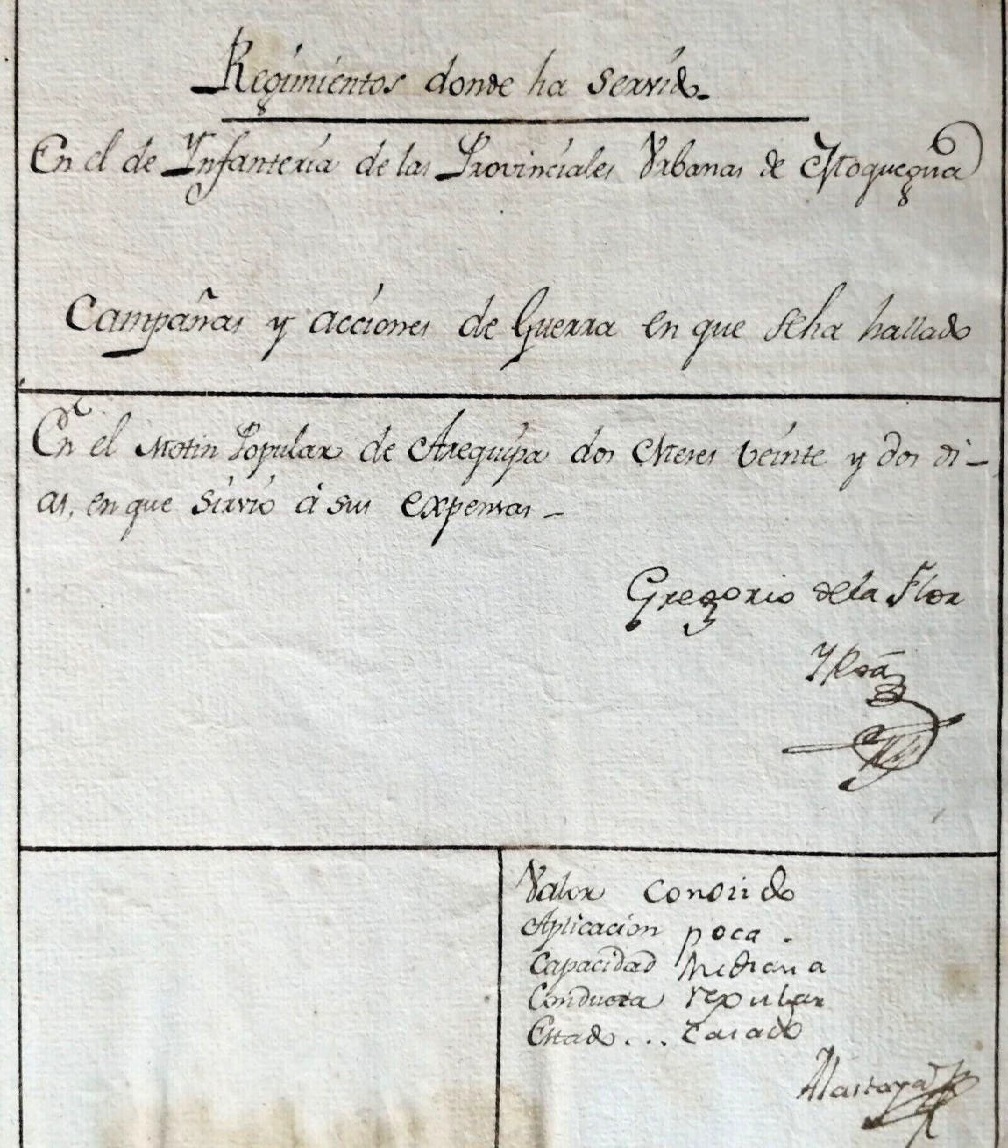 Regimientos donde ha Servido
En el de Ynfanteria de las Provinciales Vrbanas de Moquegua
Campañas y acciones de Guerra en que Seha hallado
En el Motin Popular de Arequipa dos Meses veinte y dos di-
as, en que Sirvio á sus expensas -
Gregorio dela Flor
Valor Conosido
Aplicacion poca.
Capacidad Mediana
Conducta regular
Estado... Casado